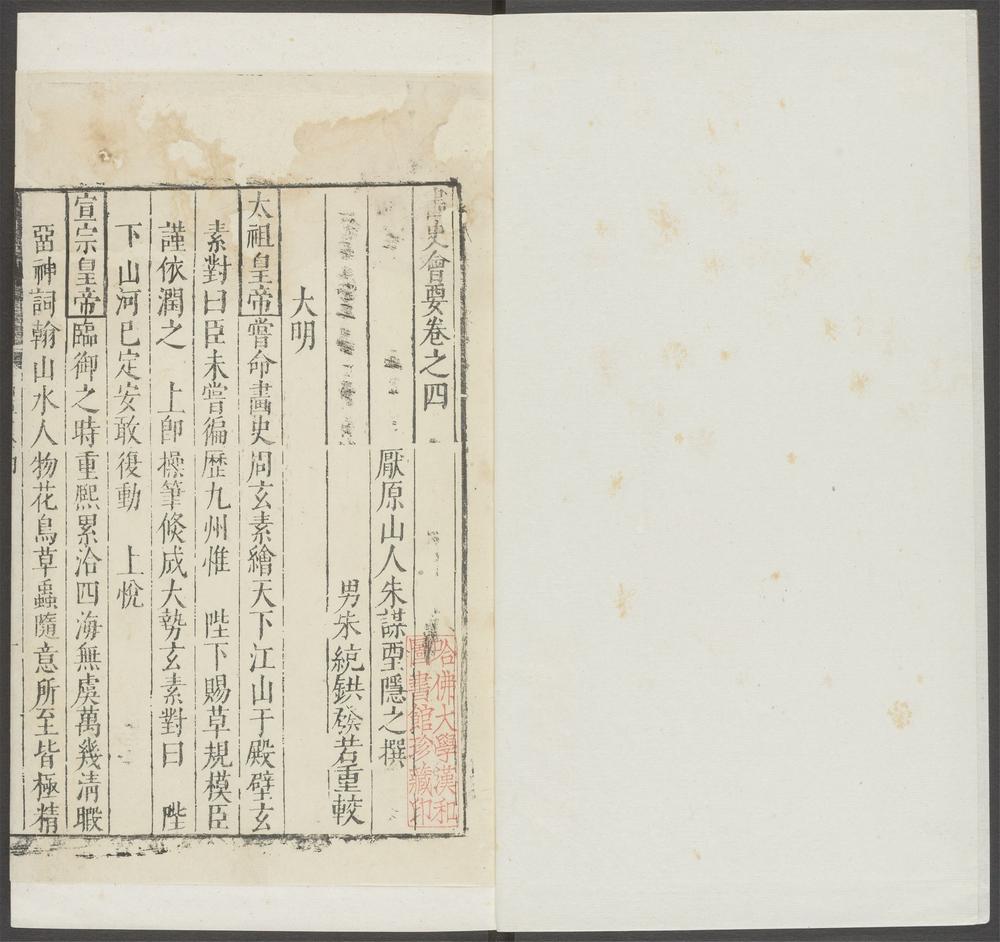 畫史會要卷之四
厭原山人朱謀垔隱之撰
男朱統鉷發若重較
大明
太祖皇帝嘗命畫史周玄素繪天下江山于殿壁玄
素對曰臣未嘗徧歷九州惟 陛下賜草規模臣
謹依潤之 上即操筆倐成大勢玄素對曰 陛
下山河已定安敢復動 上悅
宣宗皇帝臨御之時重熙累洽四海無虞萬幾清暇
畱神詞翰山水人物花鳥草蟲隨意所至皆極精
哈佛大學漢和
圖書館珍藏印